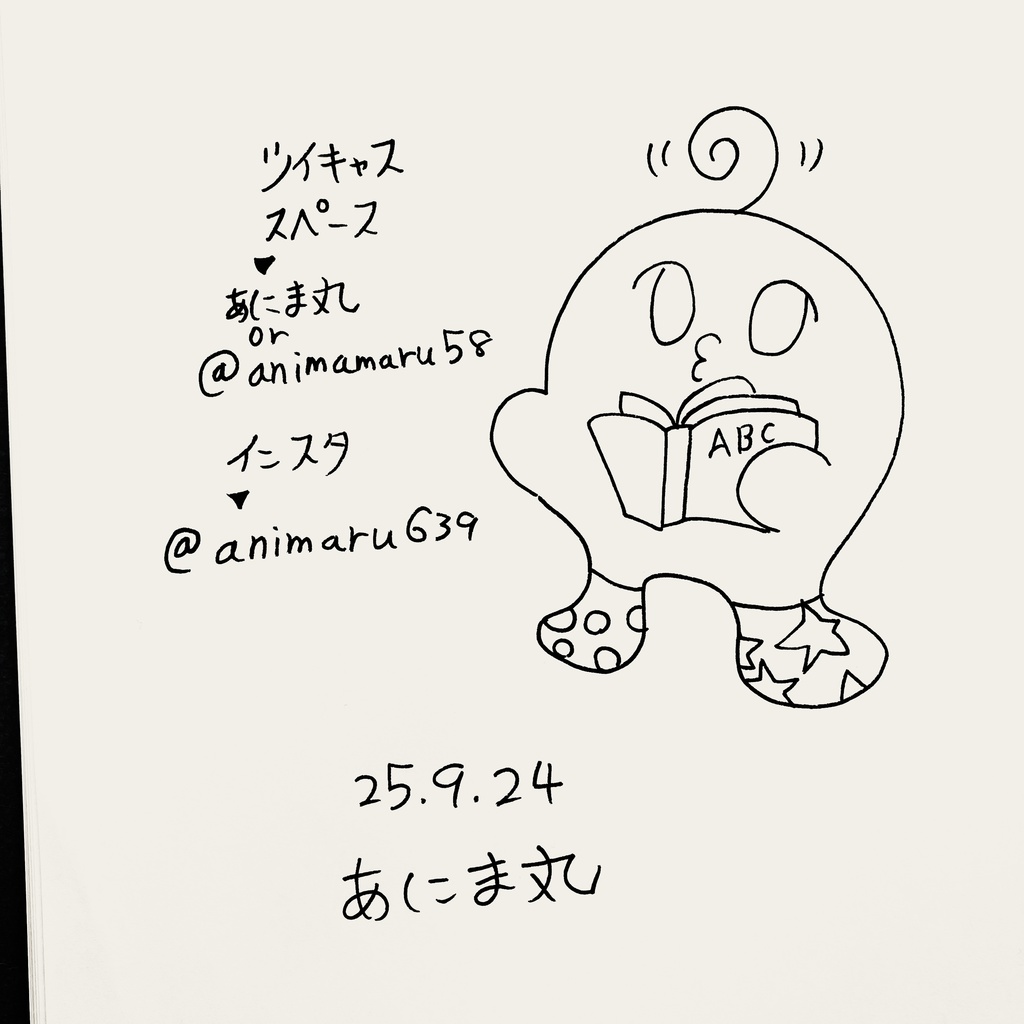 ツイキャス
スペース
▼
あにま丸
or
@animamaru58
インスタ
▼
@animaru639
ABC
25.9.24
あにま丸